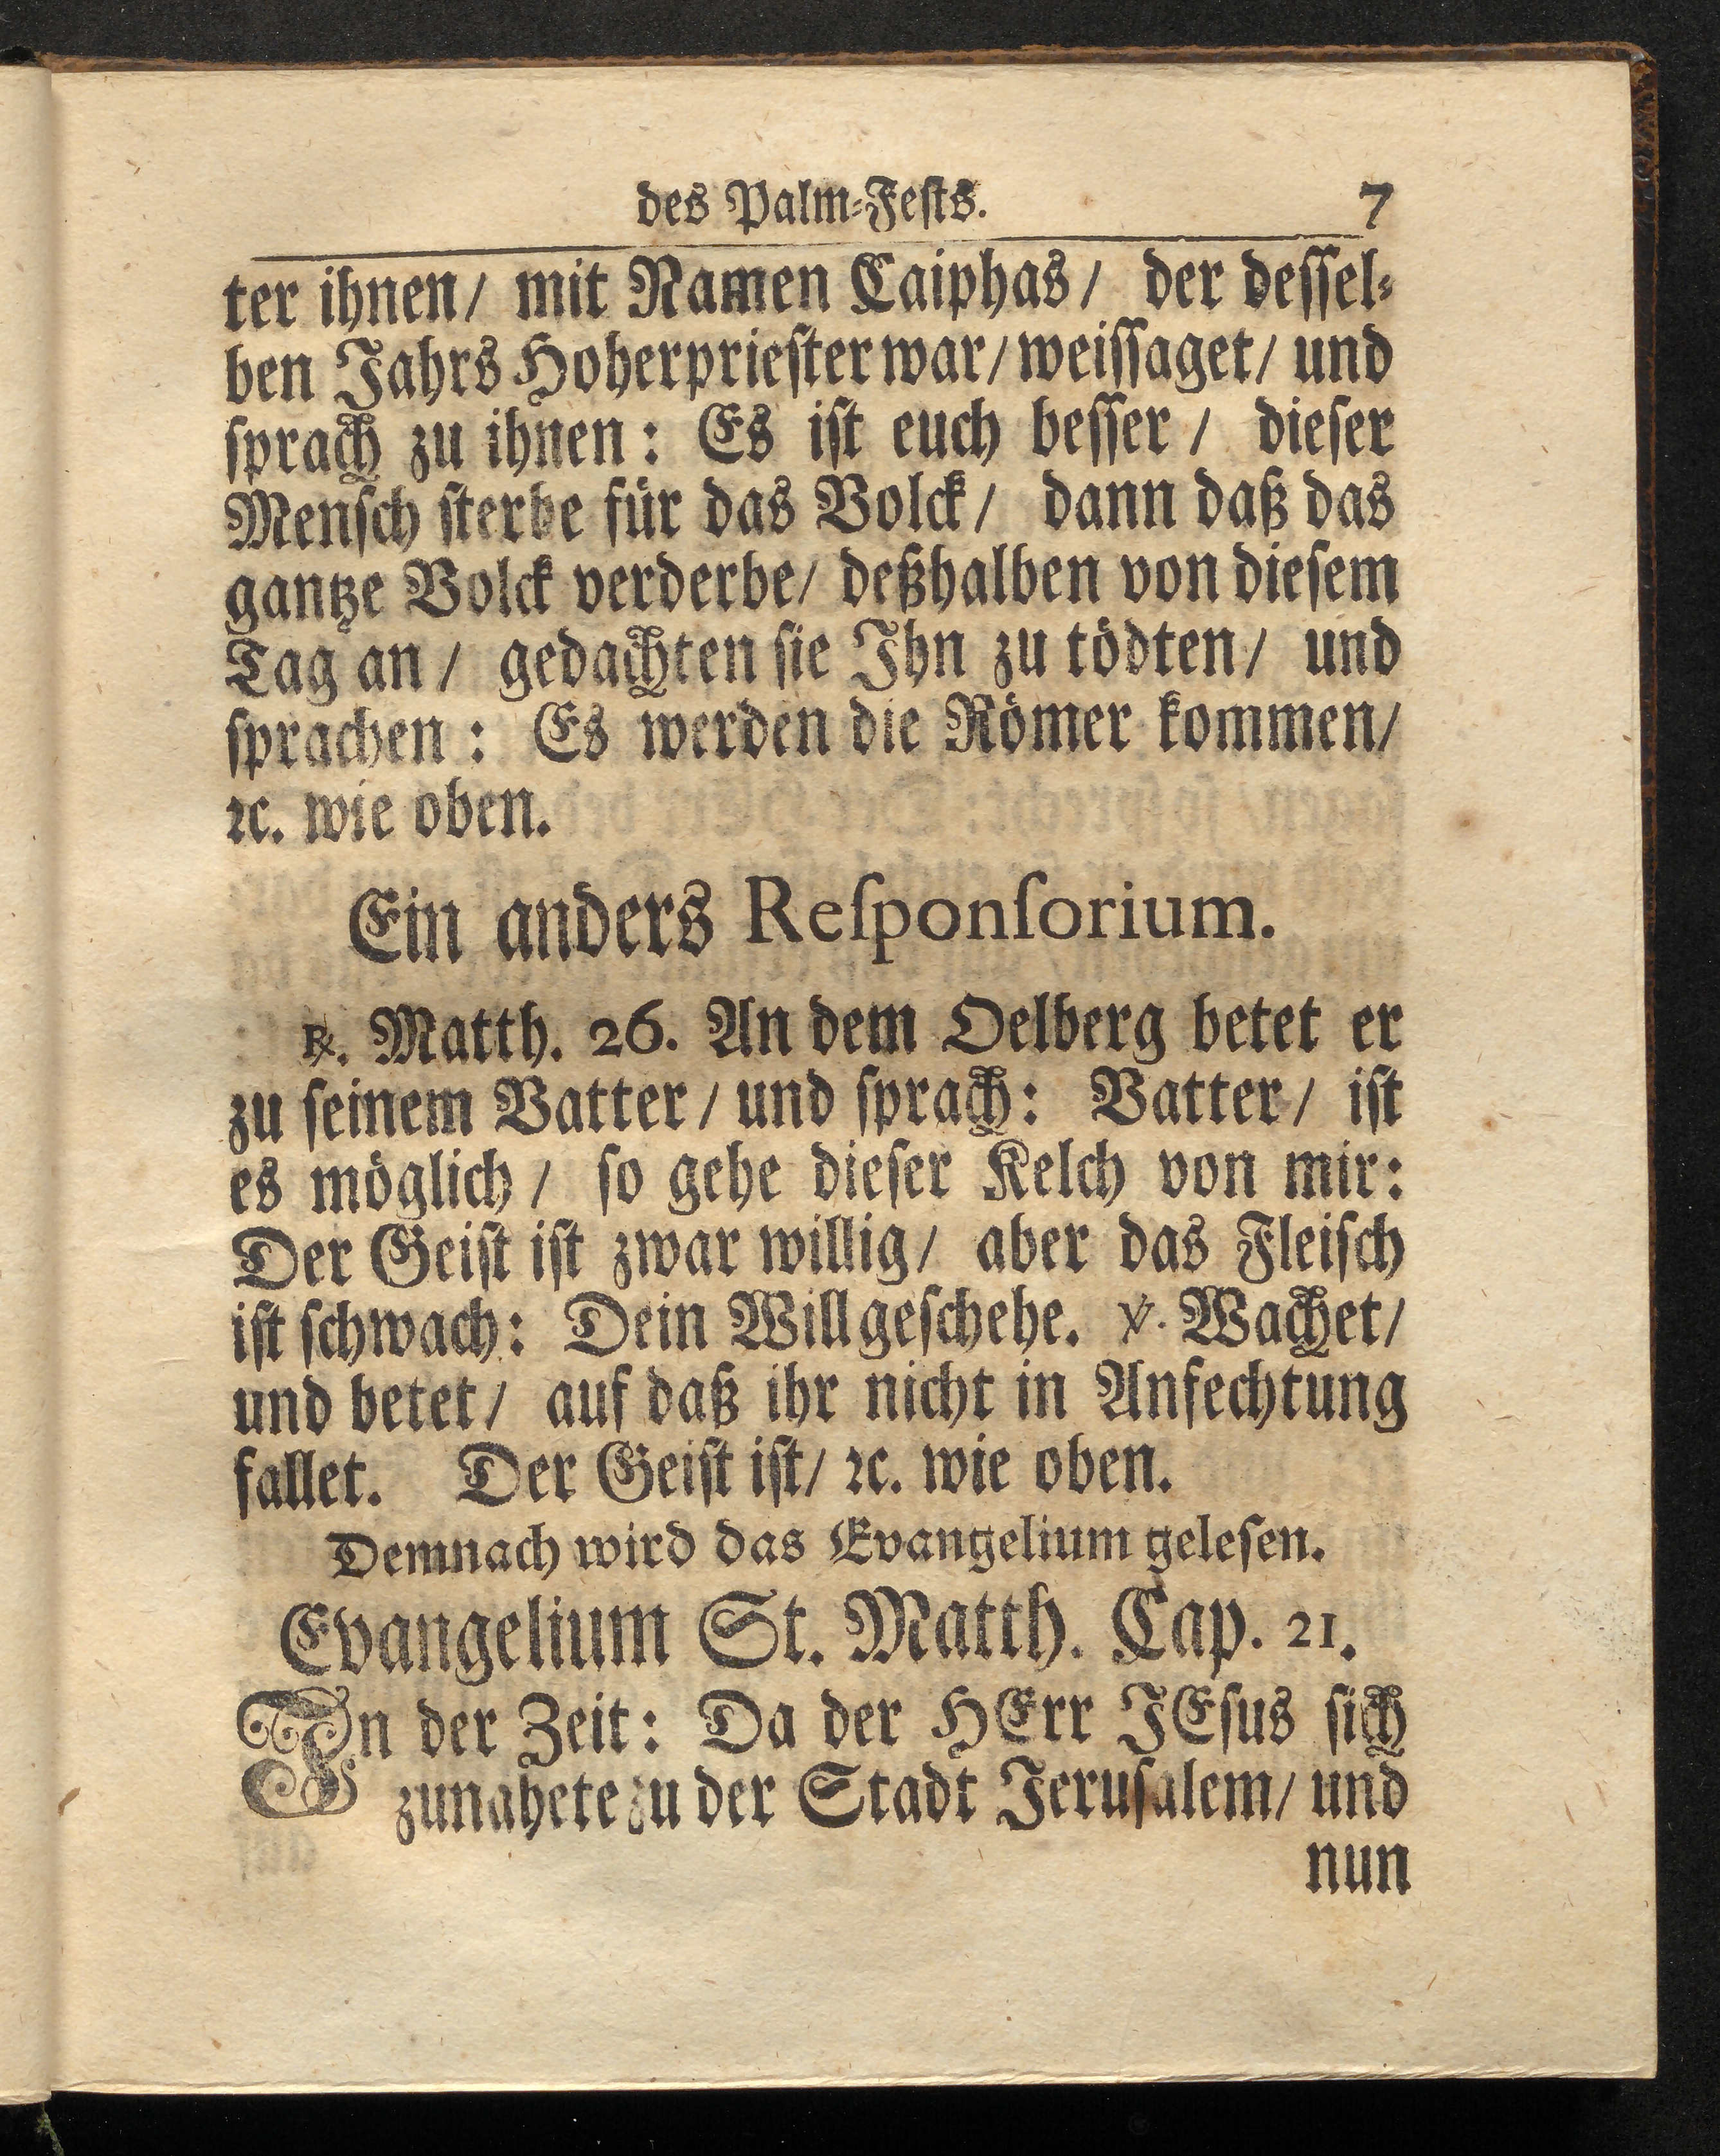 des Palm-Feſts. 7
ter ihnen/ mit Namen Caiphas/ der deſſel-
ben Jahrs Hoherprieſter war/ weiſſaget/ und
ſprach zu ihnen: Es iſt euch beſſer/ dieſer
Menſch ſterbe für das Volck/ dann daß das
gantze Volck verderbe/ deßhalben von dieſem
Tag an/ gedachten ſie Ihn zu tödten/ und
ſprachen: Es werden die Römer kommen/
ꝛc. wie oben.
Ein anders Reſponſorium.
℟. Matth. 26. An dem Oelberg betet er
zu ſeinem Vatter/ und ſprach: Vatter/ iſt
es möglich/ ſo gehe dieſer Kelch von mir:
Der Geiſt iſt zwar willig/ aber das Fleiſch
iſt ſchwach: Dein Will geſchehe. ℣. Wachet/
und betet/ auf daß ihr nicht in Anfechtung
fallet. Der Geiſt iſt/ ꝛc. wie oben.
Demnach wird das Evangelium geleſen.
Evangelium St. Matth. Cap. 21.
In der Zeit: Da der HErr JEſus ſich
zunahete zu der Stadt Jeruſalem/ und
nun